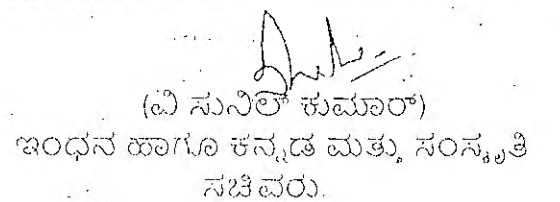 (ವಿ ಸುನಿಲ್ ಕುಮಾರ್)
ಇಂಧನ ಹಾಗೂ ಕನ್ನಡ ಮತ್ತು ಸಂಸ್ಕೃತಿ
ಸಚಿವರು.